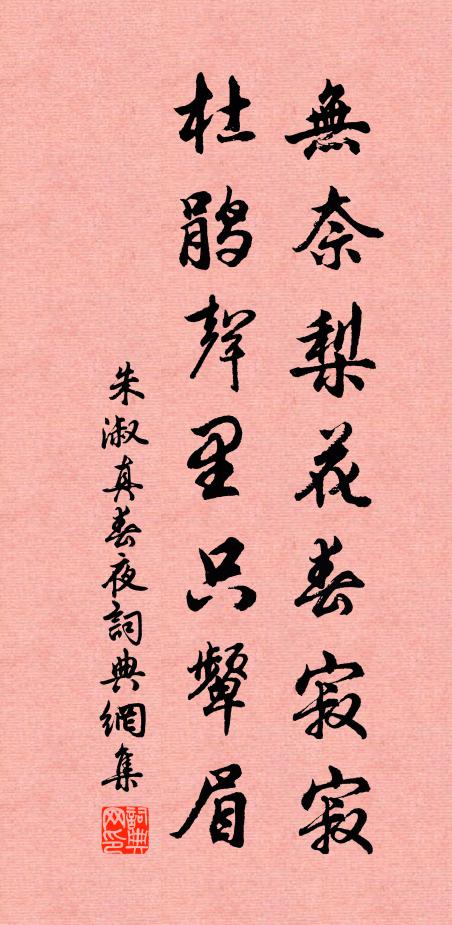 無奈梨花春寂寂
杜鹃聲里只颦眉
朱淑真春夜詞典網集
詞典网印